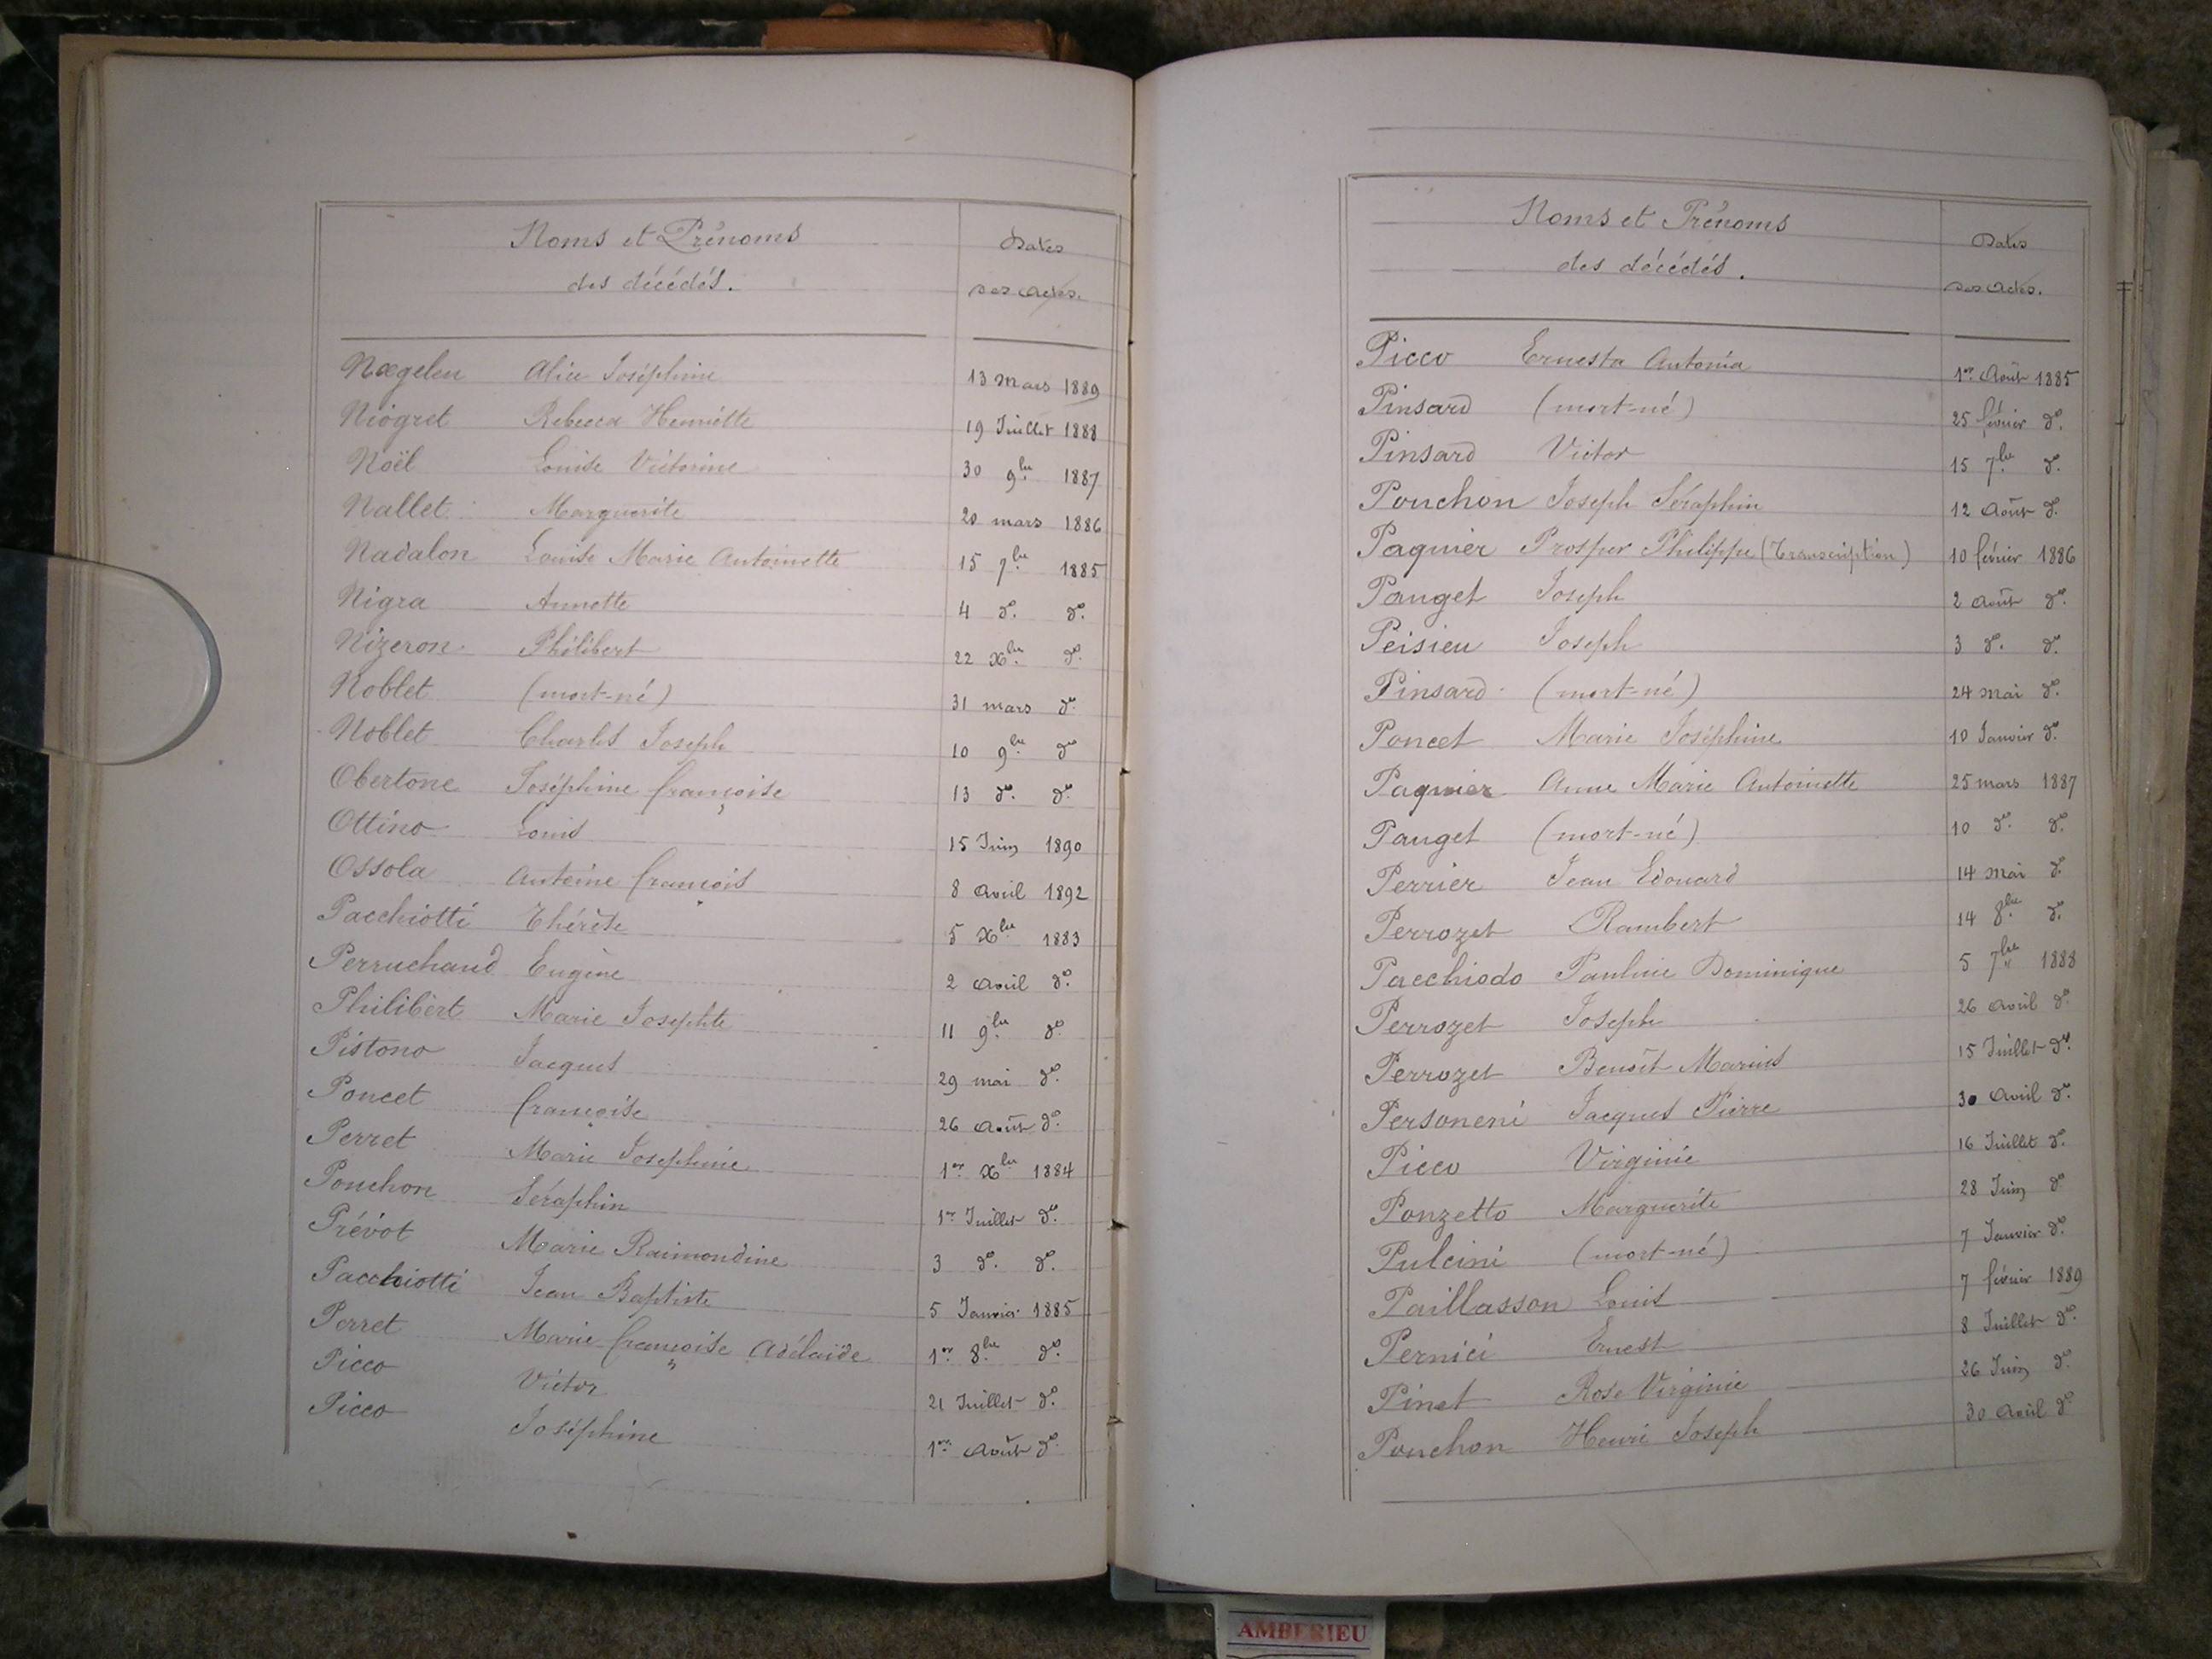 Noms et Prénoms
des décédés.
Dates
des actes.
Nægelen Alice Joséphine 13 mars 1889
Niogret Rebecca Henriette 19 Juillet 1888
Noël Louise Victorine 30 9bre 1887
Nallet Marguerite 20 mars 1886
Nadalon Louise Marie Antoinette 15 7bre 1885
Nigra Annette 4 do. do.
Nizeron Philibert 22 Xbre do.
Noblet (mort-né) 31 mars do.
Noblet Charles Joseph 10 9bre do
Obertone Joséphine françoise 13 do. do.
Ottino Louis 15 Juin 1890
Ossola Antoine françois 8 avril 1892
Pacchiotti Thérèse 5 Xbre 1883
Perruchaud Eugène 2 avril do.
Philibert Marie Josephte 11 9bre do.
Pistono Jacques 29 mai do.
Poncet françoise 26 Août do.
Perret Marie Josephine 1er Xbre 1884
Ponchon Séraphin 1er Juillet do.
Prévot Marie Raimondine 3 do. do.
Pacchiotti Jean Baptiste 5 Janvier 1885
Perret Marie françoise Adélaïde 1er 8bre do.
Picco Victor 21 Juillet do.
Picco Joséphine 1er Août do.
Noms et Prénoms
des décédés.
Dates
des actes.
Picco Ernesta Antonia 1er Août 1885
Pinsard (mort-né) 25 février do.
Pinsard Victor 15 7bre do.
Ponchon Joseph Séraphin 12 Août do.
Pagnier Prosper Philippe (Transcription) 10 février 1886
Pauget Joseph 2 août do.
Peisieu Joseph 3 do. do.
Pinsard (mort-né) 24 mai do.
Poncet Marie Joséphine 10 Janvier do.
Pagnier Anne Marie Antoinette 25 mars 1887
Pauget (mort-né) 10 do. do.
Perrier Jean Edouard 14 mai do.
Perrozet Rambert 14 8bre do.
Pacchiodo Pauline Dominique 5 7bre 1888
Perrozet Joseph 26 avril do.
Perrozet Benoît Marius 15 Juillet do.
Personeni Jacques Pierre 30 Avril do.
Picco Virginie 16 Juillet do.
Ponzetto Marguerite 28 Juin do
Pulcini (mort-né) 7 Janvier do.
Paillasson Louis 7 février 1889
Pernici Ernest 8 Juillet do.
Pinet Rose Virginie 26 Juin do.
Ponchon Henri Joseph 30 Avril do
AMBERIEU